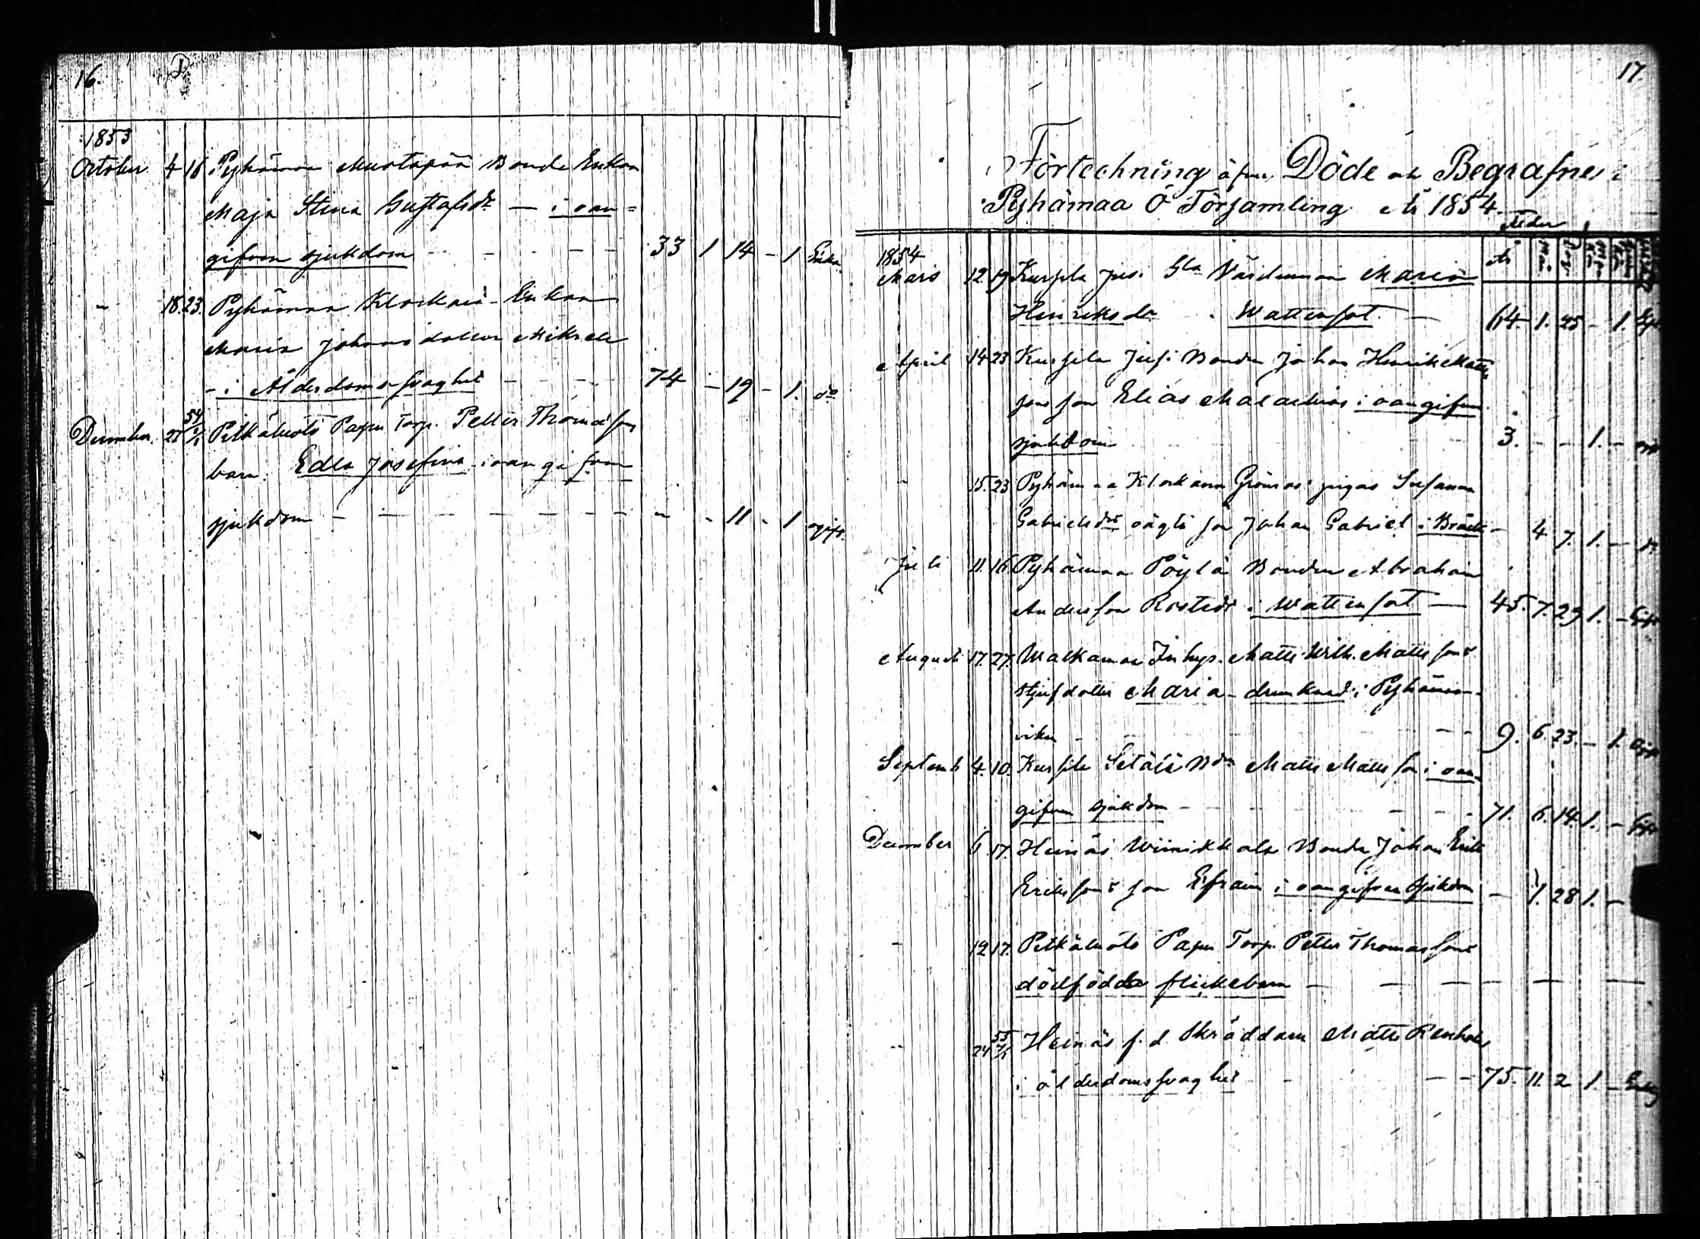 16.
1853
October 4 16 Pyhämaa Mustapää Bonde Enkan
Maja Stina Gustafsdr — i oan=
gifven sjukdom - - - - 33 1 14 - 1 Enka
- 18 23. Pyhämaa Klockars Enkan
Maria Johansdotter Mikola
- i Ålderdomssvaghet - - - 74 - 19 - 1. do
December 27 54 2/1 Pitkäluoto Papu Torp. Petter Thomæson
barn. Edla Josefina i oangifven
sjukdom - - - - - - - - - 11 - 1 ogift.
17.
Förteckning öfver Döde och Begrafne i
Pyhämaa Ö Församling År 1854.
Ålder
År
1854
Mars 12 19 Kursila Maria
Henriksdr i Wattensot — 64. 1. 25 - 1.
April 14 23 Kursila Bonden Johan Henrik Matts
son son Elias Malakias i oangifven
sjukdom 3. - - 1. -
- 15. 23 Pyhämaa Klockars pigas Susanna
Gabrielsdrs oägta son Johan Gabriel i Bråck — 4 7. 1. -
Juli 11. 16 Pyhämaa Pöylä Bonden Abraham
Andersson Rostedt i Wattensot — 45. 7. 29 1. - Gift
Augusti 17. 27. Walkamaa Inhys. Matts Wilh. Mattssons
styfdotter Maria - drunknad i Pyhämaa
viken - - - 9. 6 23. - 1. Ogift
Septemb 4. 10. Kursila Setälä Bdn Matts Mattsson i oan
gifven sjukdom - - - - 71. 6. 14. 1. - Gift
December 6 17. Heinäs Winikkala Bonden Johan Erik
Erikssons son Efraim i oangifven sjukdom — 1. 28 1. -
- 12 17. Pitkäluoto Papu Torp. Petter Thomassons
dödfödda flickebarn - - - - - -
- 24 55 Heinäs f.d Skräddaren Matts Renholm
i ålderdomssvaghet - - - 75. 11. 2 1. -